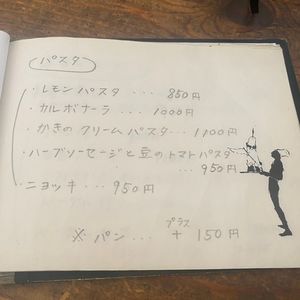 パスタ
・レモンパスタ ... 850円
・カルボナーラ ... 1000円
・かきのクリームパスタ ... 1100円
・ハーブソーセージと豆のトマトパスタ
... 950円
・ニョッキ ... 950円
※ パン ... プラス + 150円